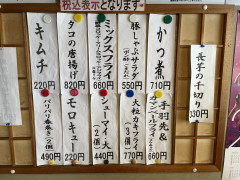 税込表示となります
かつ煮
710円
豚しゃぶサラダ
550円
ミックスフライ
660円
タコの唐揚げ
820円
キムチ
220円
長芋の千切り
330円
手羽先&
カマンベールフライ
660円
大粒カキフライ
(3個)
770円
シューマイ・大
(2個)
440円
モロキュー
220円
パリパリ春巻き(2個)
490円